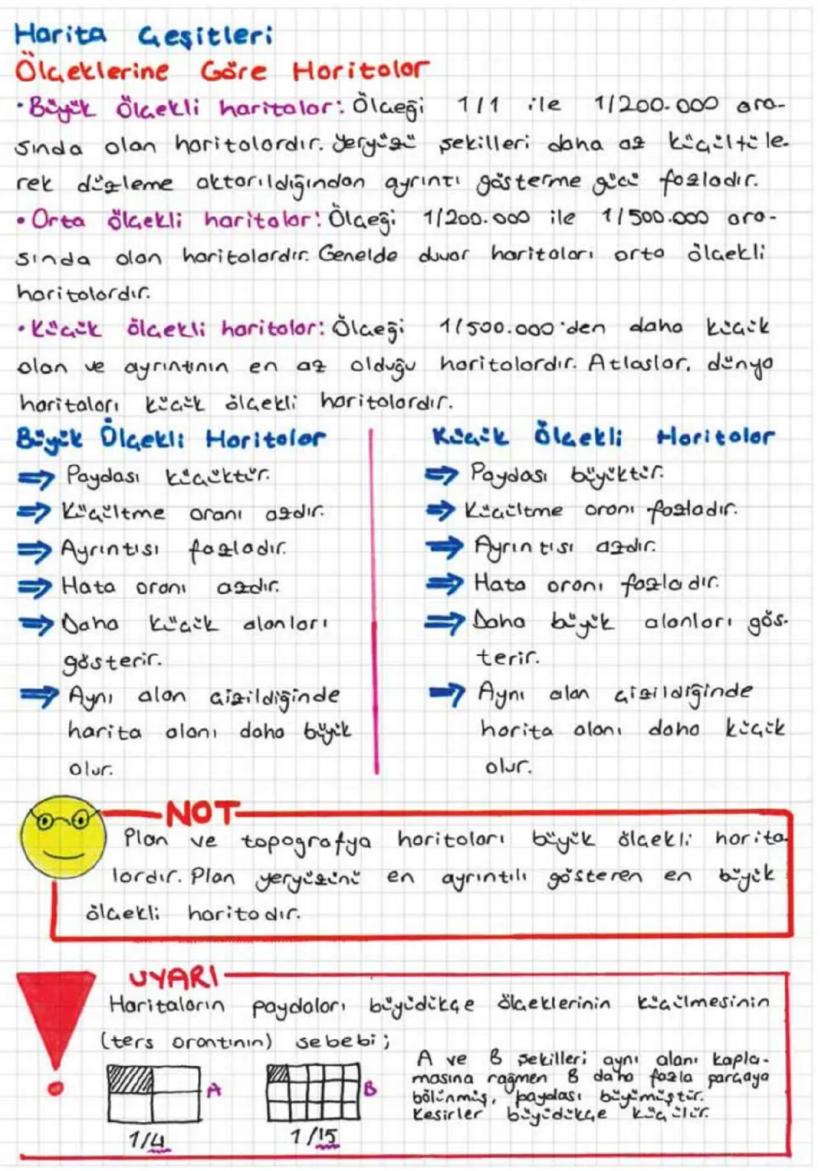 Harita Çeşitleri
Ölçeklerine Göre Haritalar
• Büyük Ölçekli haritalar: Ölçeği 1/1 ile 1/200.000 ara-
sında olan haritalardır. Yeryüzü şekilleri daha az küçültüle-
rek düzleme aktarıldığından ayrıntı gösterme gücü fazladır.
• Orta ölçekli haritalar: Ölçeği 1/200.000 ile 1/500.000 ara-
sında olan haritalardır. Genelde duvar haritaları orta ölçekli
haritalardır.
• Küçük ölçekli haritalar: Ölçeği 1/500.000'den daha küçük
olan ve ayrıntının en az olduğu haritalardır. Atlaslar, dünya
haritaları küçük ölçekli haritalardır.
Büyük Ölçekli Haritalar
⇒ Paydası küçüktür.
⇒ Küçültme oranı azdır.
⇒ Ayrıntısı fazladır.
⇒ Hata oranı azdır.
⇒ Daha küçük alanları
gösterir.
⇒ Aynı alan çizildiğinde
harita alanı daha büyük
olur.
Küçük ölçekli Haritalar
⇒ Paydası büyüktür.
⇒ Küçültme oranı fazladır.
⇒ Ayrıntısı azdır.
⇒ Hata oranı fazladır.
⇒ Daha büyük alanları gös-
terir.
⇒ Aynı alan çizildiğinde
harita alanı daha küçük
olur.
NOT
Plan ve topografya haritaları büyük ölçekli harita
lardır. Plan yeryüzünü en ayrıntılı gösteren en büyük
ölçekli haritadır.
UYARI
Haritaların paydaları büyüdükçe ölçeklerinin küçülmesinin
(ters orantının) sebebi;
A
1/4
B
1/15
A ve B şekilleri aynı alanı kapla-
masına rağmen B daha fazla parçaya
bölünmüş, paydası büyümüştür.
Kesirler büyüdükçe küçülür.